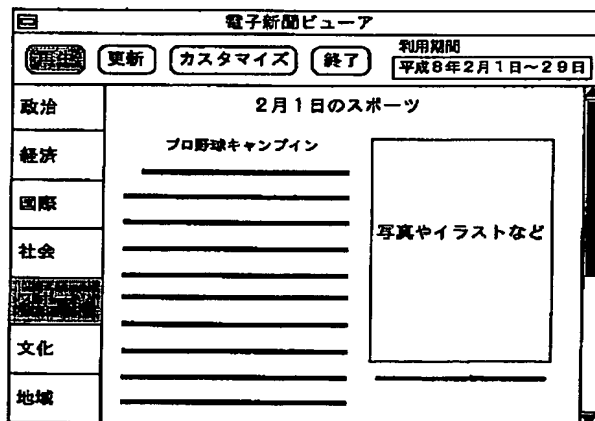 電子新聞ビューア
更新
カスタマイズ
終了
利用期間
平成8年2月1日～29日
政治
経済
国際
社会
文化
地域
2月1日のスポーツ
プロ野球キャンプイン
写真やイラストなど